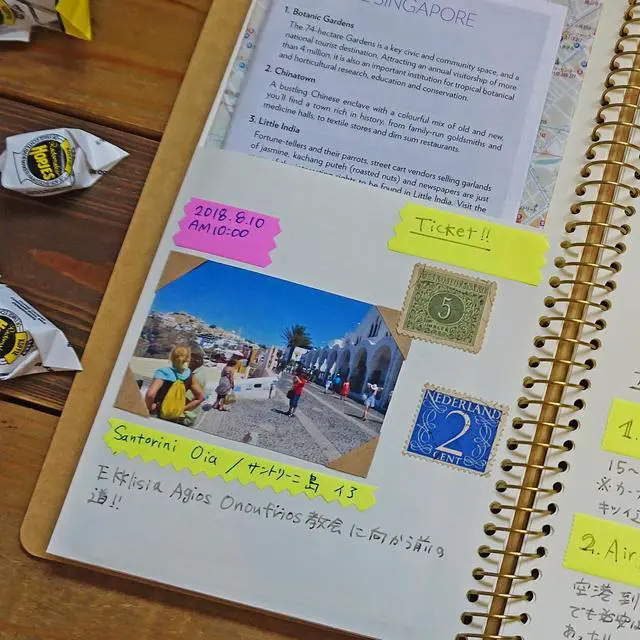 SINGAPORE
1. Botanic Gardens
The 74-hectare Gardens is a key civic and community space, and a
national tourist destination. Attracting an annual visitorship of more
than 4 million, it is also an important institution for tropical botanical
and horticultural research, education and conservation.
2. Chinatown
A bustling Chinese enclave with a colourful mix of old and new,
you'll find a town rich in history, from family-run goldsmiths and
medicine halls, to textile stores and dim sum restaurants.
3. Little India
Fortune-tellers and their parrots, street cart vendors selling garlands
of jasmine, kachang puteh (roasted nuts) and newspapers are just
to be found in Little India. Visit the
2018.8.10
AM10:00
Ticket!!
5
NEDERLAND
2
CENT
Santorini Oia / サントリーニ島 イア
Ekklisia Agios Onoufrios教会に向かう前の
道!!
HOPJES
1.
15~
※カー
キツイ
2. Air
空港到
でも治安は